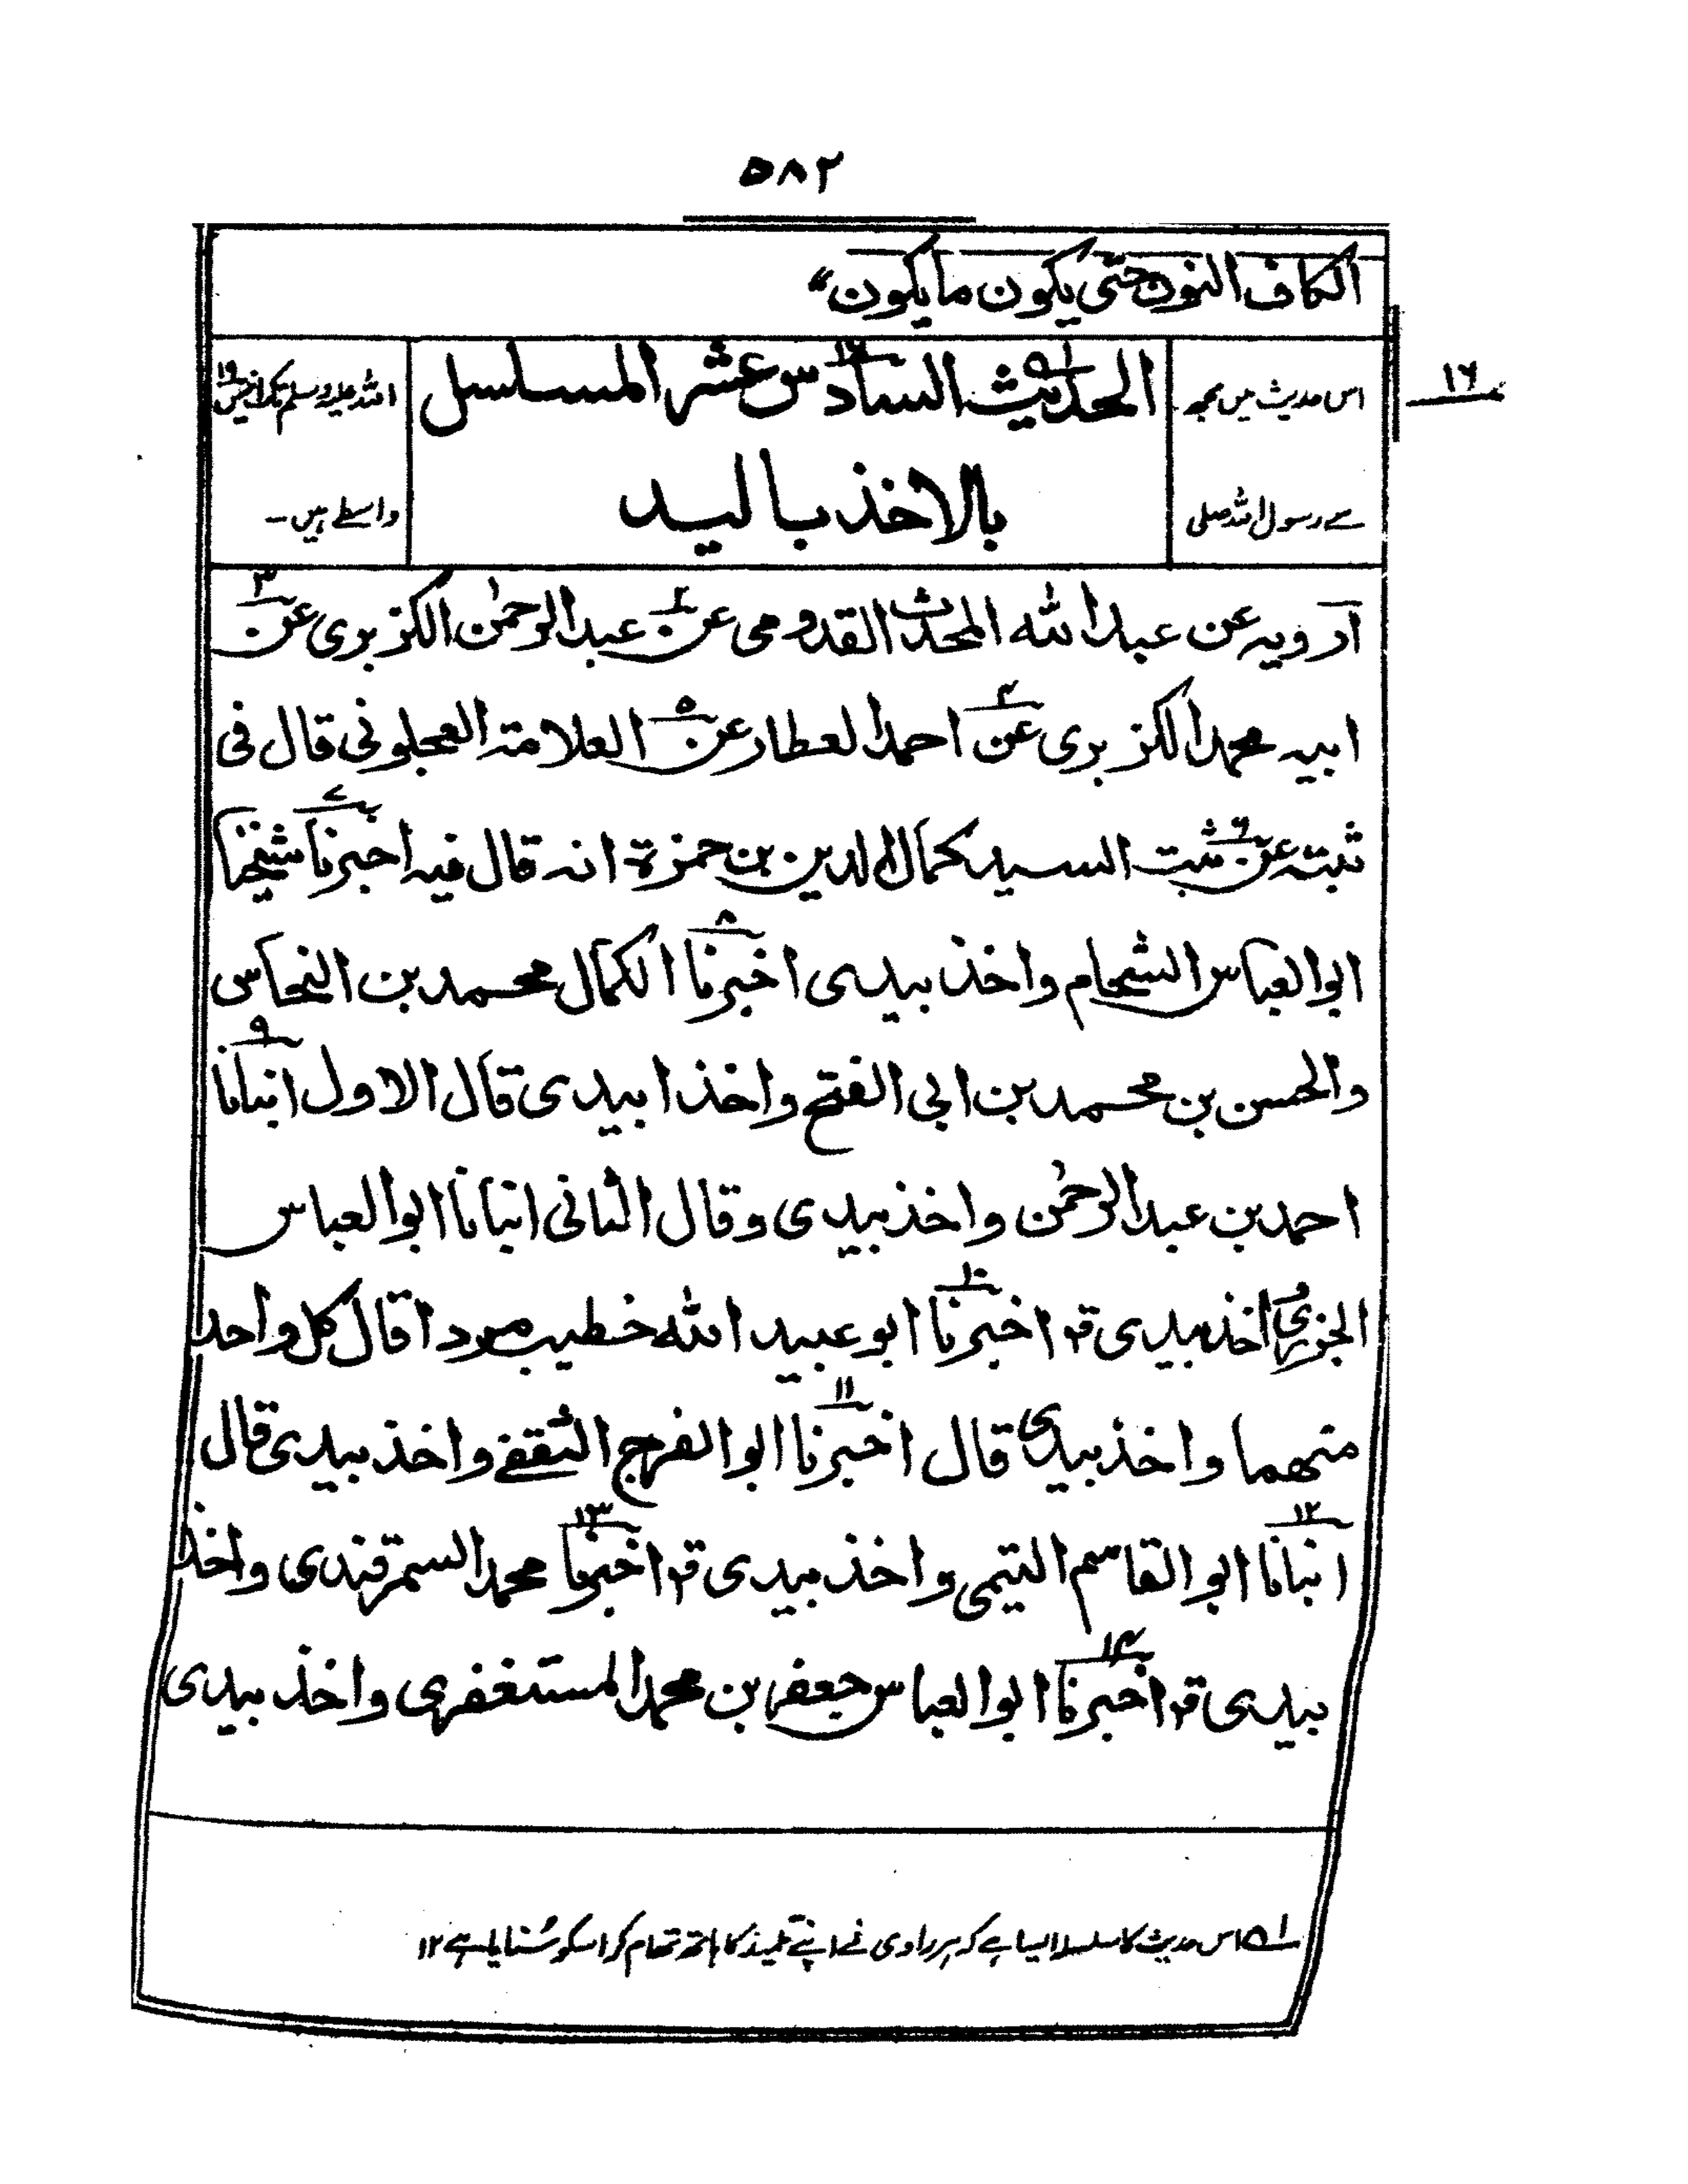 ۵۸۲
الكاف النون حتى يكون ما يكون"
نمبر ۱۶
اس حدیث میں مجھ
سے رسول اللہ صلی
الحدیث السادس عشر المسلسل
بالاخذ بالید
اللہ علیہ وسلم تک انیس ۱۹
واسطے ہیں۔
ارویہ عن عبد اللہ المحدث القدومی عن ۲ عبد الرحمٰن الکزبری عن ۳
ابیہ محمد الکزبری عن ۴ احمد العطار عن ۵ العلامۃ العجلونی قال فی
ثبتہ عن ۶ ثبت السید کمال الدین بن حمزۃ انہ قال فیہ اخبرنا ۷ شیخنا
ابو العباس الشحام واخذ بیدی اخبرنا ۸ الکمال محمد بن النحاس
والحسن بن محمد بن ابی الفتح واخذا بیدی قال الاول انبانا ۹
احمد بن عبد الرحمٰن واخذ بیدی وقال الثانی انبانا ابو العباس
اخذ بیدی قا اخبرنا ۱۰ ابو عبید اللہ خطیب مردا قال کل واحد
منھما واخذ بیدی قال اخبرنا ۱۱ ابو الفرج الثقفی واخذ بیدی قال
انبانا ۱۲ ابو القاسم التیمی واخذ بیدی قا اخبرنا ۱۳ محمد السمرقندی واخذ
بیدی قا اخبرنا ۱۴ ابو العباس جعفر بن محمد المستغفری واخذ بیدی
۱؎ اس حدیث کا سلسلہ ایسا ہے کہ ہر راوی نے اپنے تلمیذ کا ہاتھ تھام کر اسکو سُنایا ہے ۱۲